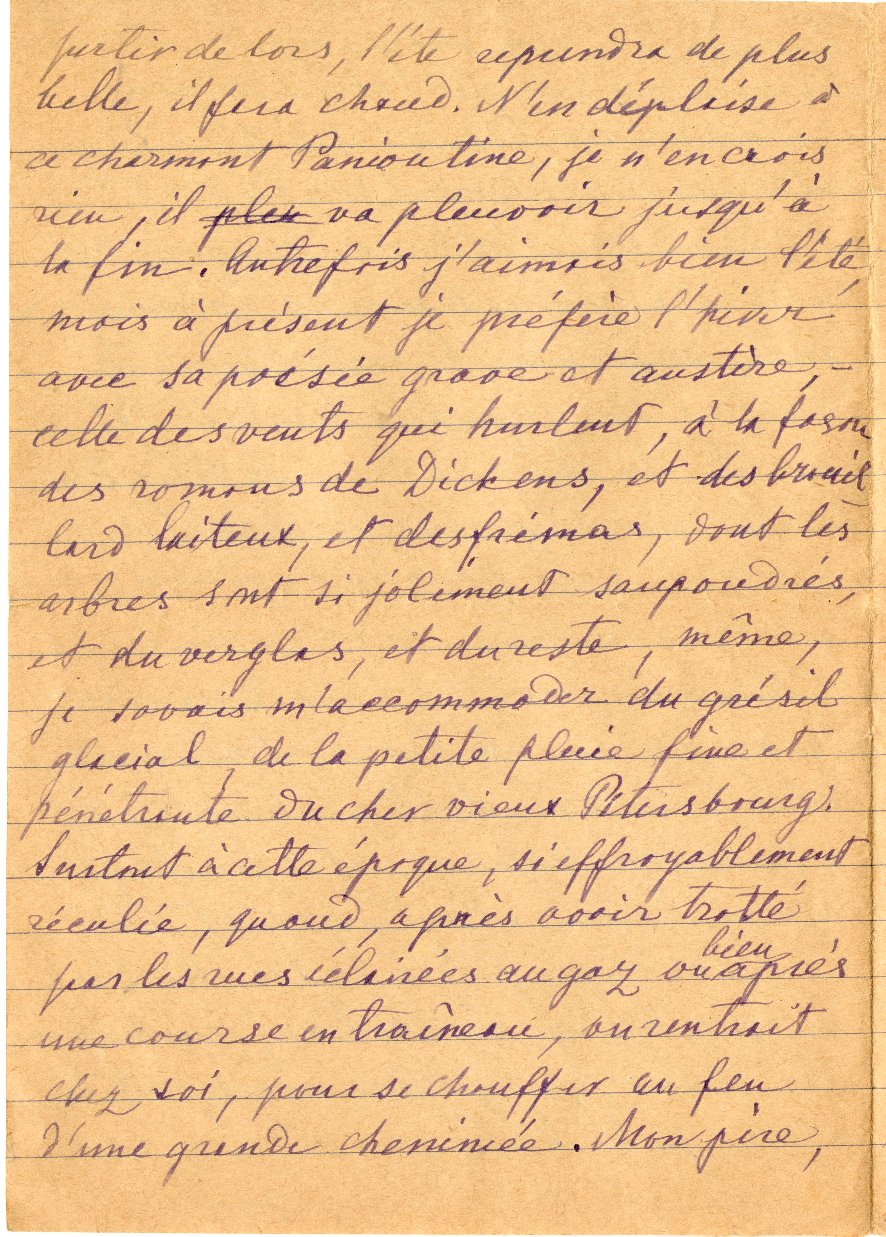 partir de lors, l'été reprendra de plus
belle, il fera chaud. N'en déplaise à
ce charmant Panioutine, je n'en crois
rien, il pleu va pleuvoir jusqu'à
la fin. Autrefois j'aimais bien l'été,
mais à présent je préfère l'hiver
avec sa poésie grave et austère, –
celle des vents qui hurlent, à la façon
des romans de Dickens, et des brouil
lard laiteux, et des frimas, dont les
arbres sont si joliment saupoudrés,
et du verglas, et du reste, même,
je savais m'accommoder du grésil
glacial, de la petite pluie fine et
pénétrante du cher vieux Pétersbourg.
Surtout à cette époque, si effroyablement
réculée, quand, après avoir trotté
par les rues éclairées au gaz ou bien après
une course en traîneau, on rentrait
chez soi, pour se chauffer au feu
d'une grande cheminée. Mon père,